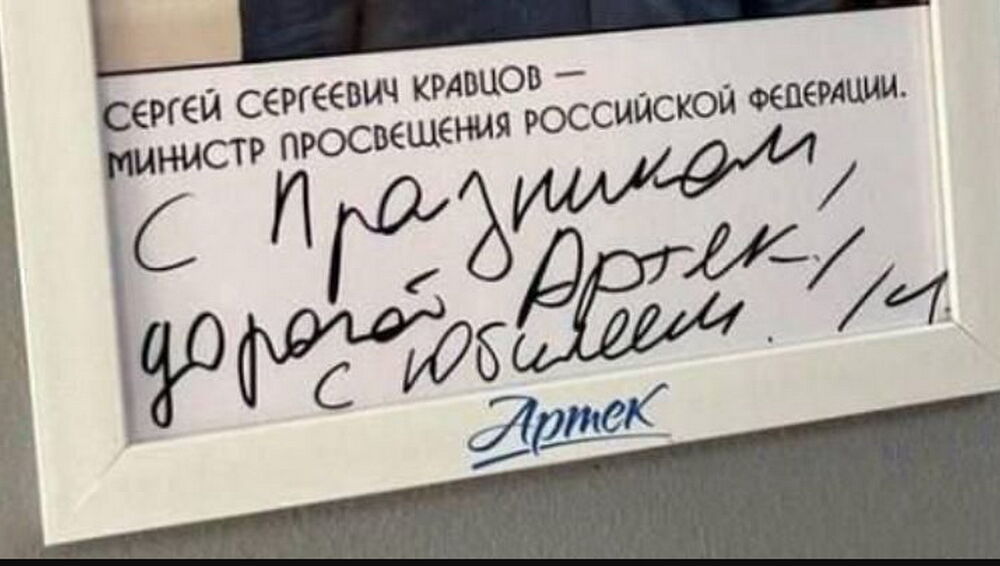 СЕРГЕЙ СЕРГЕЕВИЧ КРАВЦОВ —
МИНИСТР ПРОСВЕЩЕНИЯ РОССИЙСКОЙ ФЕДЕРАЦИИ.
С Празником,
дорогой Артек,
с Юбилеем.
Артек